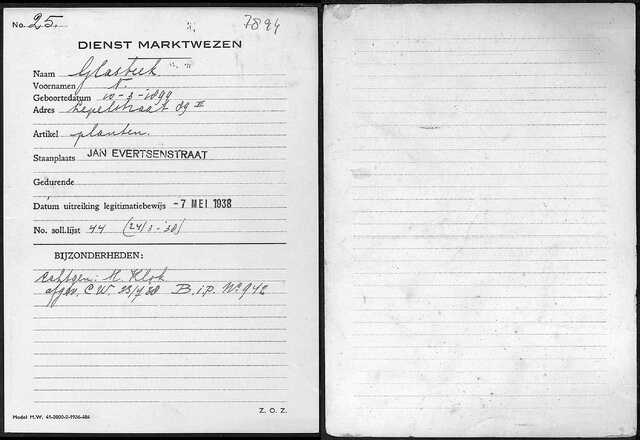 No. 25. 7894
DIENST MARKTWEZEN
Naam Glasbeek
Voornamen N.
Geboortedatum 10-3-1899
Adres Lepelstraat 89 II
Artikel planten.
Staanplaats JAN EVERTSENSTRAAT
Gedurende
Datum uitreiking legitimatiebewijs -7 MEI 1938
No. soll.lijst 44 (24/3-'38)
BIJZONDERHEDEN:
M. Klok
afgew. C.W. 23/7 38 B.i.P. No. 942
Model M.W. Z. O. Z.